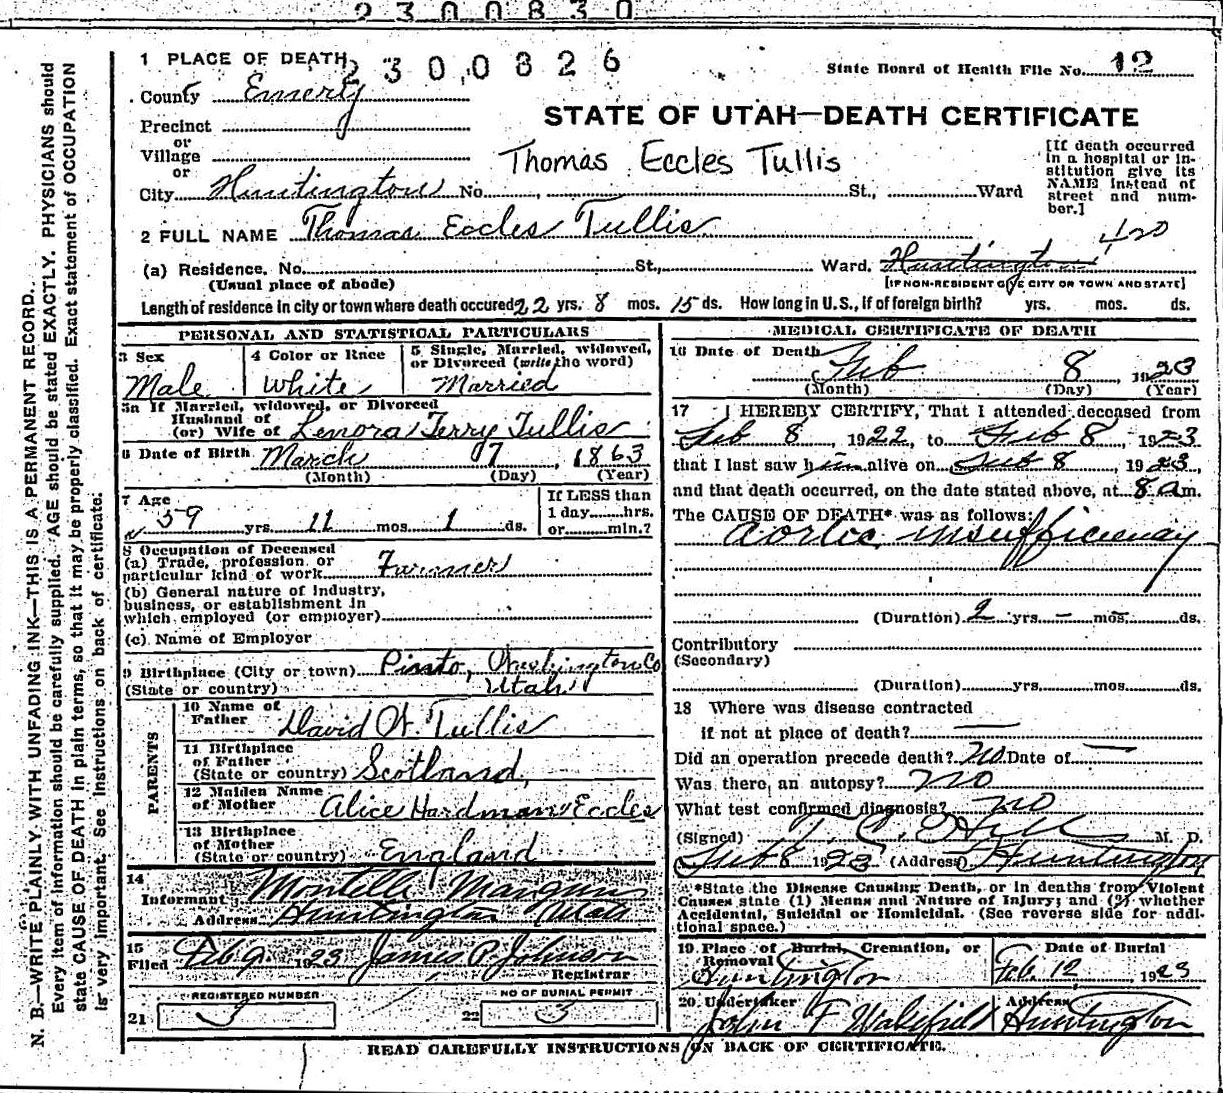 2300830
1 PLACE OF DEATH
2300826
State Board of Health File No. 12
County Emery
STATE OF UTAH—DEATH CERTIFICATE
Precinct
or
Village
or
Thomas Eccles Tullis
[If death occurred in a hospital or institution give its NAME instead of street and number.]
City Huntington No. , St., Ward
2 FULL NAME Thomas Eccles Tullis
420
(a) Residence. No. St., Ward. Huntington
(Usual place of abode) [IF NON-RESIDENT GIVE CITY OR TOWN AND STATE]
Length of residence in city or town where death occured 22 yrs. 8 mos. 15 ds. How long in U.S., if of foreign birth? yrs. mos. ds.
PERSONAL AND STATISTICAL PARTICULARS
3 Sex
Male
4 Color or Race
White
5 Single, Married, widowed, or Divorced (write the word)
Married
5a If Married, widowed, or Divorced
Husband of
(or) Wife of Lenora Terry Tullis
6 Date of Birth March 7, 1863
(Month) (Day) (Year)
7 Age
59 yrs. 11 mos. 1 ds.
If LESS than
1 day hrs.
or min.?
8 Occupation of Deceased
(a) Trade, profession or
particular kind of work Farmer
(b) General nature of industry,
business, or establishment in
which employed (or employer)
(c) Name of Employer
9 Birthplace (City or town) Pinto, Washington Co
(State or country) Utah
PARENTS
10 Name of
Father David W. Tullis
11 Birthplace
of Father
(State or country) Scotland
12 Maiden Name
of Mother Alice Hardman Eccles
13 Birthplace
of Mother
(State or country) England
14
Informant Montelle Mangum
Address Huntington Utah
15
Filed Feb 9 1923 James P Johnson
Registrar
REGISTERED NUMBER
21
NO OF BURIAL PERMIT
22 3
MEDICAL CERTIFICATE OF DEATH
16 Date of Death Feb 8, 1923
(Month) (Day) (Year)
17 I HEREBY CERTIFY, That I attended deceased from
Feb 8, 1922, to Feb 8, 1923
that I last saw him alive on Feb 8, 1923,
and that death occurred, on the date stated above, at 8 am.
The CAUSE OF DEATH* was as follows:
aortic insufficiency
(Duration) 2 yrs. - mos. - ds.
Contributory
(Secondary)
(Duration) yrs. mos. ds.
18 Where was disease contracted
if not at place of death? —
Did an operation precede death? no Date of —
Was there an autopsy? no
What test confirmed diagnosis? no
(Signed) T. C. Hill M. D.
Feb 8 1923 (Address) Huntington
*State the Disease Causing Death, or in deaths from Violent
Causes state (1) Means and Nature of Injury; and (2) whether
Accidental, Suicidal or Homicidal. (See reverse side for addi-
tional space.)
19 Place of Burial, Cremation, or
Removal
Huntington
Date of Burial
Feb 12 1923
20 Undertaker
John F Wakefield
Address
Huntington
READ CAREFULLY INSTRUCTIONS ON BACK OF CERTIFICATE.
N. B.—WRITE PLAINLY WITH UNFADING INK—THIS IS A PERMANENT RECORD.
Every item of information should be carefully supplied. AGE should be stated EXACTLY. PHYSICIANS should
state CAUSE OF DEATH in plain terms, so that it may be properly classified. Exact statement of OCCUPATION
is very important. See instructions on back of certificate.